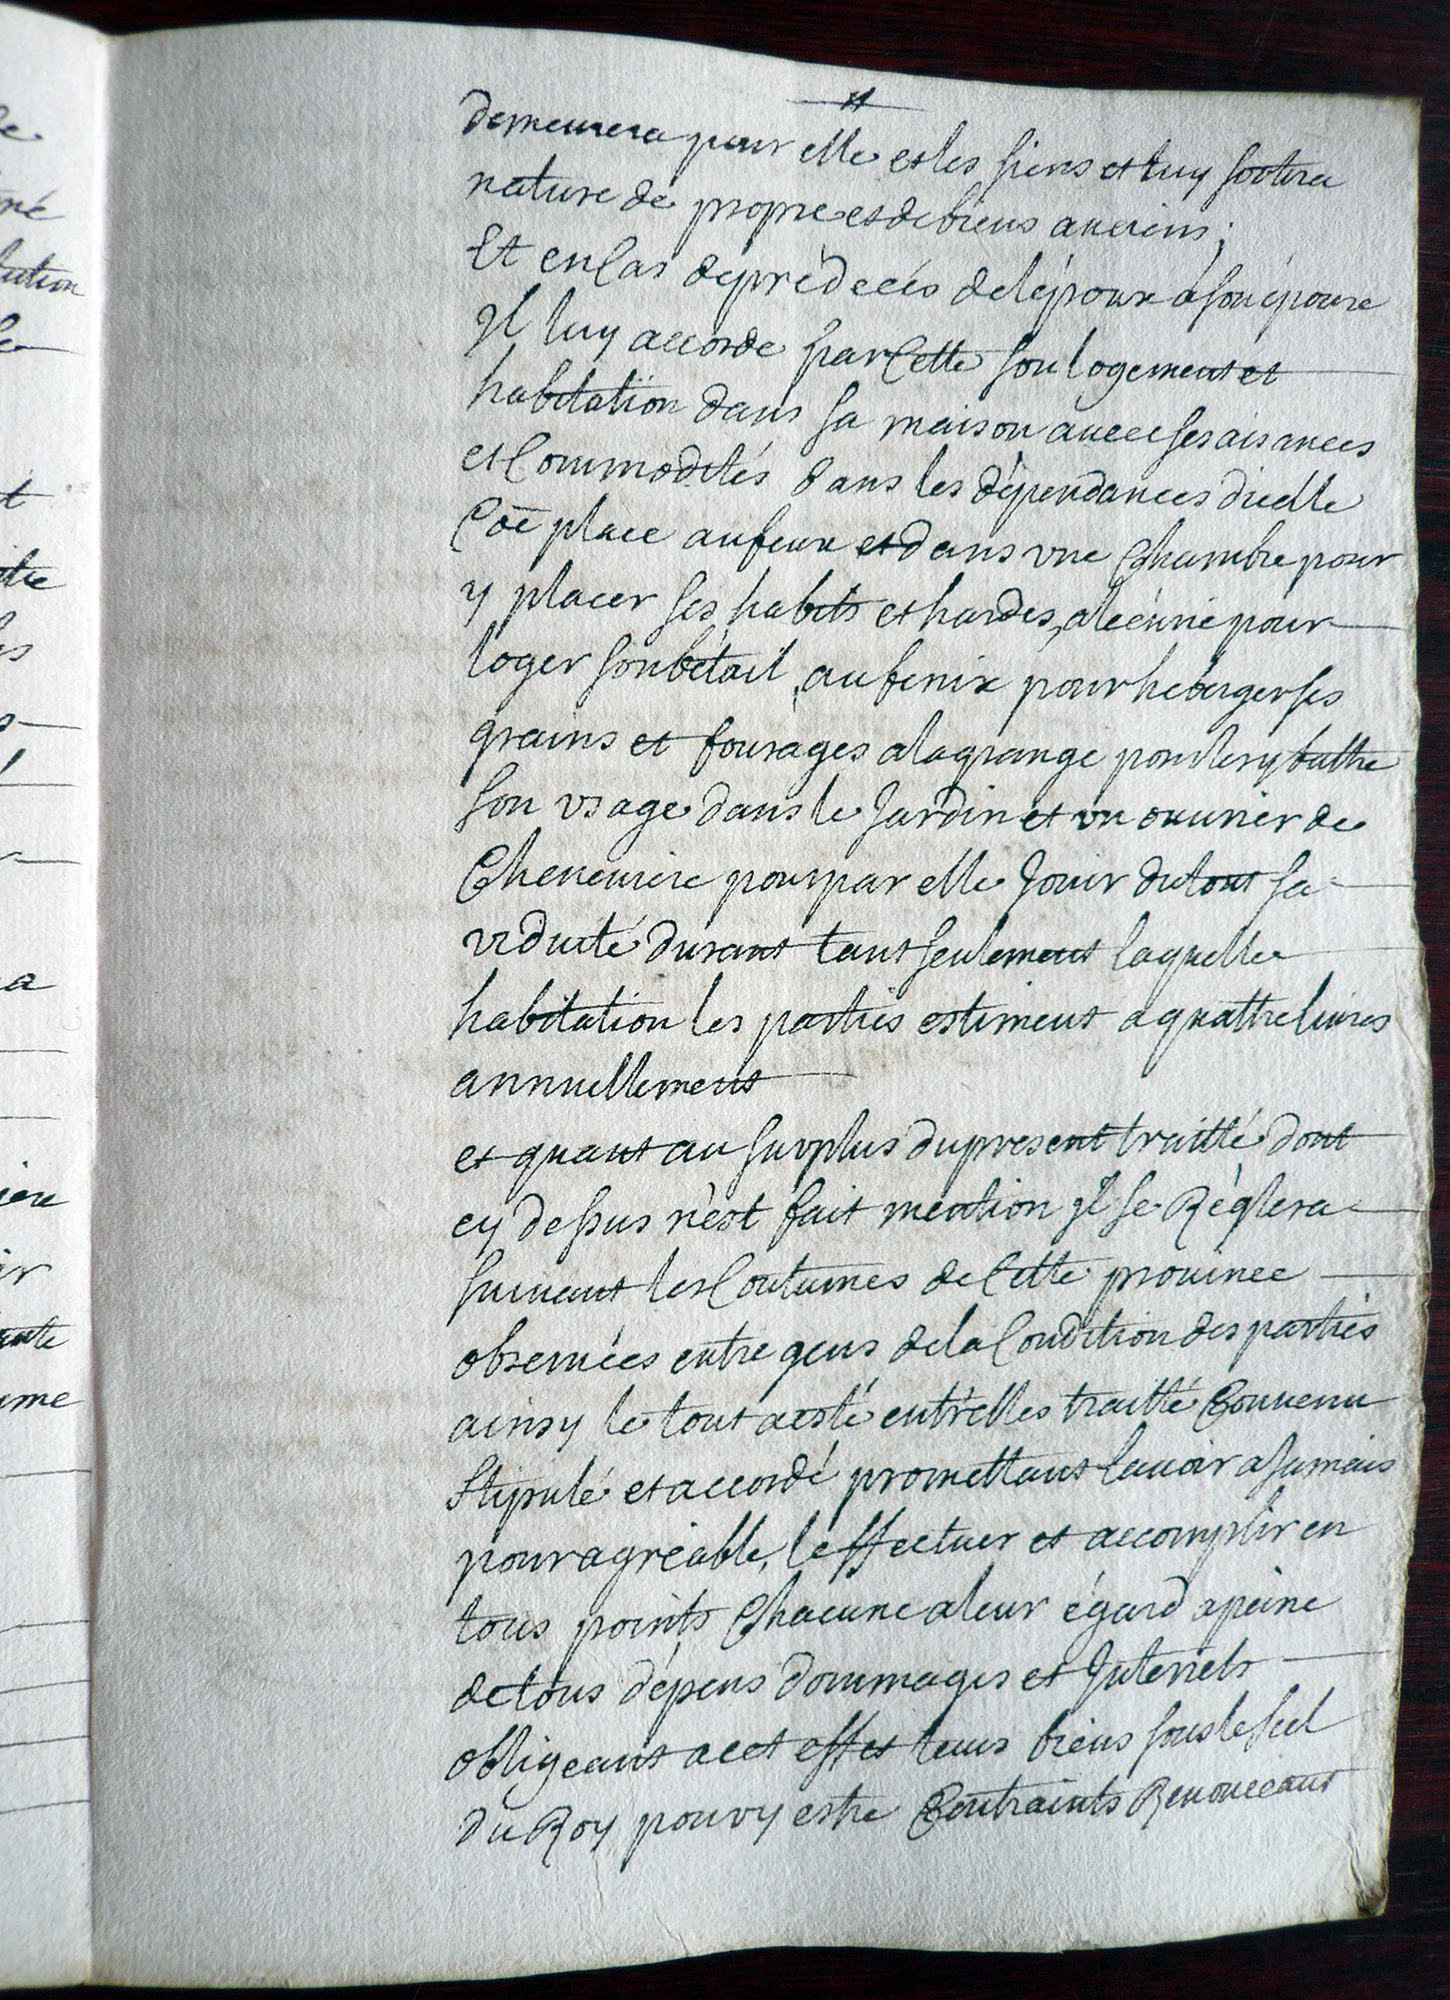 demeurera pour elle et les siens et luy sortira
nature de propre et de biens anciens ;
Et en Cas de prédecés de lépoux a son épouse
Il luy accorde par Cette son logement et
habitation dans sa maison avec ses aisances
et Commodités dans les dépendances dicelle
Coē place au feux et dans vne Chambre pour
y placer ses habits et hardes, a lécurie pour
loger son bétail, au fenix pour héberger ses
grains et fourages a la grange pour les y battre
son vsage dans le Jardin et vn ouurier de
Cheneuiere pour par elle Jouir du tout sa
viduité durant tant seulement laquelle
habitation les parties estiment a quattre liures
annuellement
et quant au surplus du present traitté dont
cy dessus n'est fait mention Il se Réglera
suiuant les Coutumes de Cette prouince
obseruées entre gens de la Condition des parties
ainsy le tout a esté entr'elles traitté Conuenu
stipulé et accordé promettans lauoir a Jamais
pour agréable, leffectuer et accomplir en
tous points Chacune a leur égard a peine
de tous dépens dommages et Interrets
obligeant a cet effet leurs biens sous le scel
du Roy pour y estre Contraints Renonceant